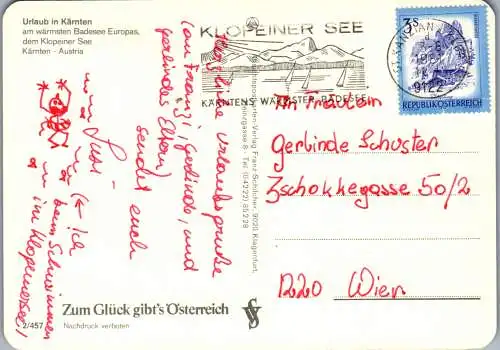 Urlaub in Kärnten
am wärmsten Badesee Europas,
dem Klopeiner See
Kärnten - Austria
KLOPEINER SEE
KÄRNTENS WÄRMSTER BADESEE
3S
9122
REPUBLIK ÖSTERREICH
Herzliche Urlaubsgrüße
(an Franzi, Gerlinde, und
Gerlindes Eltern)
sendet euch
Susi
(← ich
beim Schwimmen
im Klopeinersee!
Franz Schilcher, 9020 Klagenfurt,
Tel. (0 42 22) 85 2 28
Fräulein
Gerlinde Schuster
Zschokkegasse 50/2
1220 Wien
Zum Glück gibt's Österreich
2/457
Nachdruck verboten